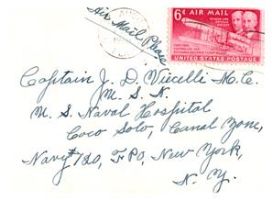 Air Mail Please
6¢ AIR MAIL
UNITED STATES POSTAGE
Captain J. D. Viecelli M.C.
U. S. N.
U. S. Naval Hospital
Coco Solo, Canal Zone,
Navy #120, F.P.O., New York,
N. Y.